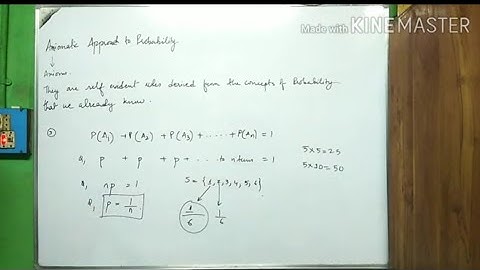 Made with KINEMASTER
Axiomatic Approach to Probability.
↓
Axioms.
They are self evident rules derived from the concepts of Probability
that we already know.
P(A₁) + P(A₂) + P(A₃) + ...... + P(Aₙ) = 1
p + p + p + ... to n term = 1
5×5=25
5×10=50
np = 1
S = {1, 2, 3, 4, 5, 6}
p = 1/n
1/6 1/6